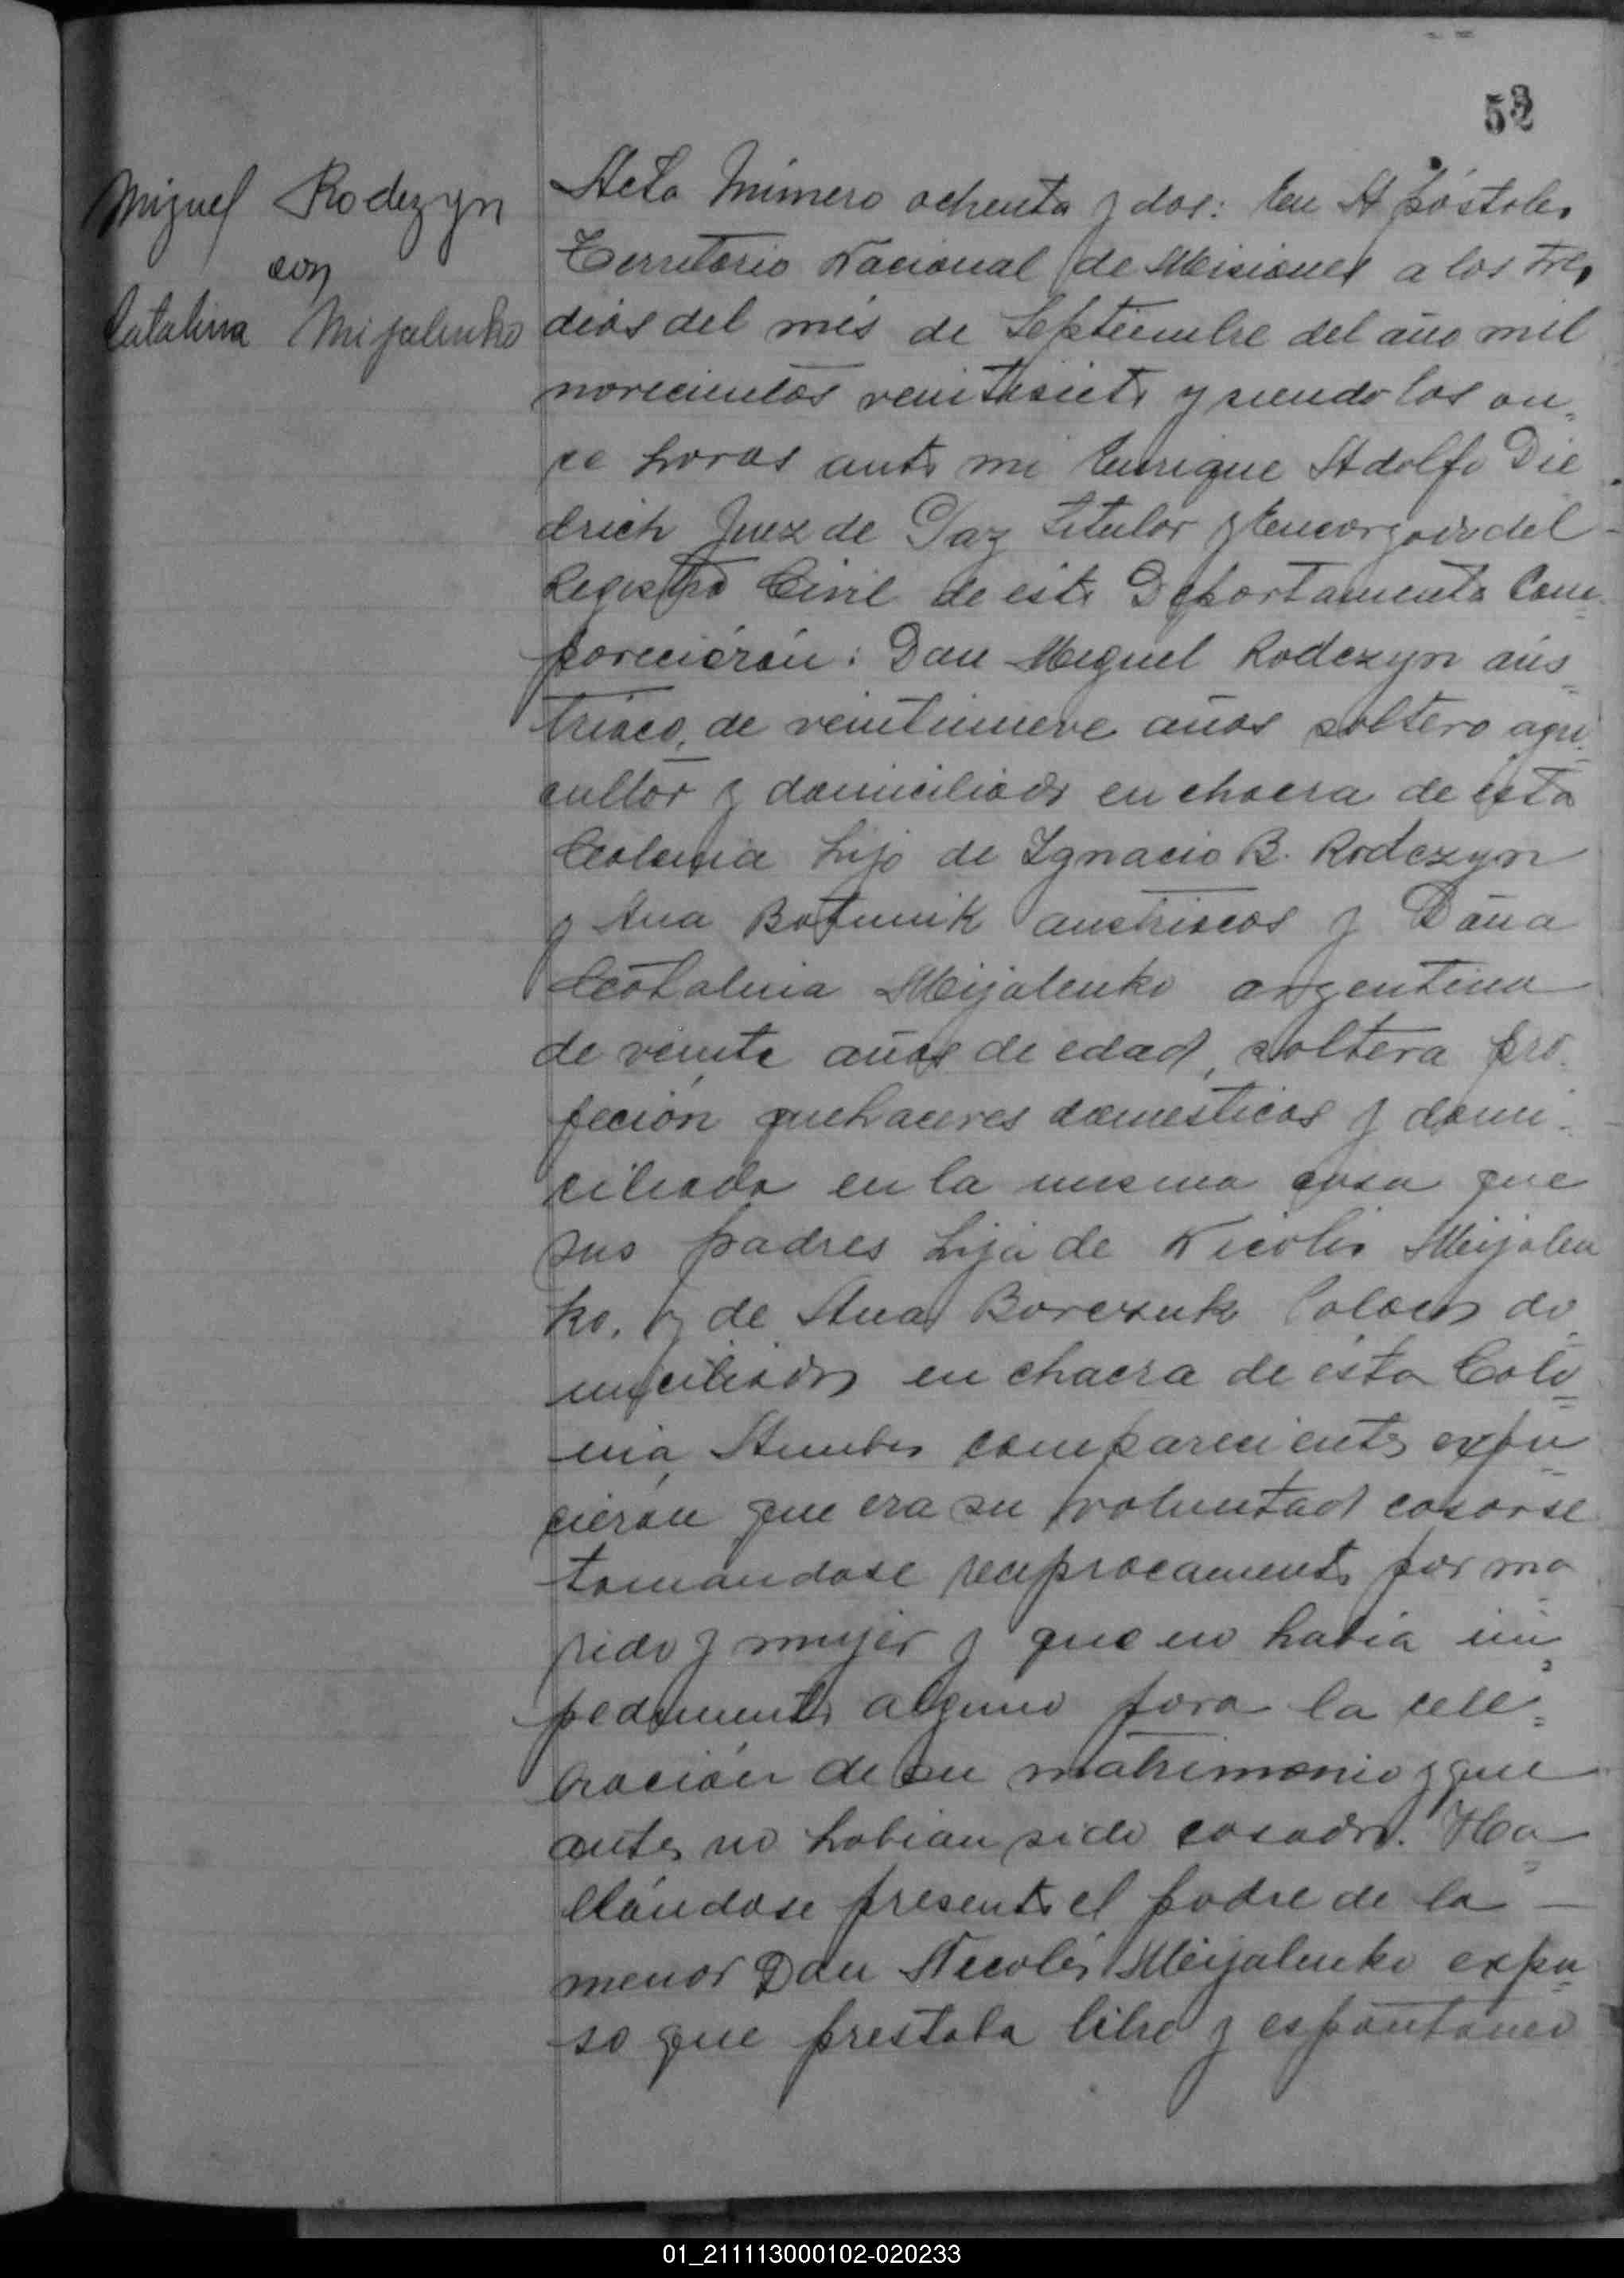 52
Miguel Rodezyn
con
Catalina Mijalenko
Acta Número ochenta y dos: En Apóstoles
Territorio Nacional de Misiones a los tres
dias del més de Septiembre del año mil
novecientos veintisiete y siendo las on-
ce horas ante mi Enrique Adolfo Die
drich Juez de Paz titular y Encargado del
Registro Civil de este Departamento Com-
parecierón: Don Miguel Rodezyn aús-
triaco, de veintinueve años soltero agri-
cultor y domiciliado en chacra de esta
Colonia hijo de Ignacio B. Rodezyn
y Ana austriacos y Doña
Catalina Mijalenko argentina
de veinte años de edad, soltera pro-
feción quehaceres domesticos y domi-
ciliada en la misma casa que
sus padres hija de Nicolás Mijalen
ko, y de Ana Borczuk Polacos do-
miciliados en chacra de ésta Colo-
nia, Ambos comparecientes expu-
cierón que era su voluntad casarse
tomandose reciprocamente por ma
rido y mujer y que no había im-
pedimento alguno para la cele-
bración de su matrimonio y que
antes no habian sido casados. Ha-
llándose presente el padre de la
menor Don Nicolás Mijalenko expu-
so que prestaba libre y espontaneo
01_211113000102-020233